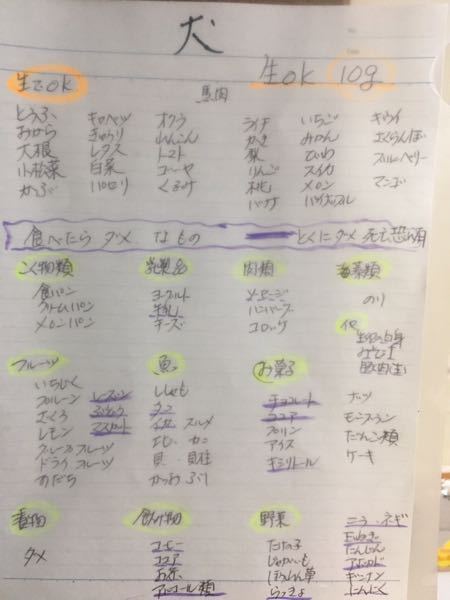 犬
生でok
生ok 10g
馬肉
とうふ キャベツ オクラ
おから きゅうり れんこん
大根 レタス トマト
小松菜 白菜 ゴーヤ
かぶ パセリ くるみ
ライチ いちご キウイ
かき みかん さくらんぼ
梨 びわ ブルーベリー
りんご スイカ
桃 メロン マンゴー
バナナ パイナップル
食べたら ダメ なもの とくにダメ 死亡恐れ有
こく物類
食パン
クリームパン
メロンパン
乳製品
ヨーグルト
牛乳
チーズ
肉類
ソーセージ
ハンバーグ
コロッケ
海藻類
のり
他
生卵の白身
豚肉(生)
フルーツ
いちじく
プルーン レーズン
ざくろ ぶどう
レモン マスカット
グレープフルーツ
ドライフルーツ
すだち
魚
ししゃも
タコ
イカ スルメ
エビ カニ
貝 貝柱
かつおぶし
お菓子
チョコレート ナッツ
ココア モンブラン
プリン だんご類
アイス ケーキ
キシリトール
漬物
ダメ
飲み物
コーヒー
ココア
お茶
アルコール類
野菜
たけの子
じゃがいも
ほうれん草
らっきょ
ニラ ネギ
玉ねぎ
にんじん
アボカド
ギンナン
にんにく